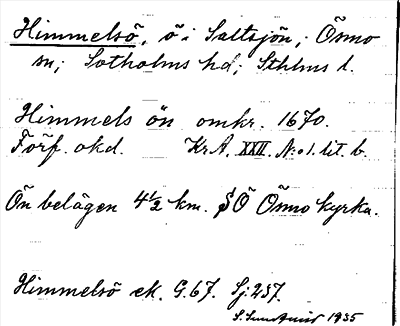 Himmelsö, ö i Saltsjön, Ösmo
sn; Sotholms hd; Sthlms l.
Himmels ön omkr. 1670.
Förf. okd. KrA. XXII. N:o 1. lit. b.
Ön belägen 4½ km. SÖ Ösmo kyrka.
Himmelsö ek. G.67. Sj:257.
1935